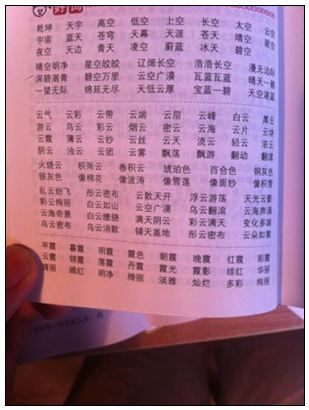 乾坤 天宇 高空 低空 上空 长空 太空 云空
宇宙 蓝天 苍穹 天幕 天涯 苍天 晴空 星空
夜空 天边 青天 凌空 蔚蓝 冰天 碧空
晴空明净 星空皎皎 辽阔长空 浩浩长空 漫无边际
深碧湛青 碧空万里 云空广漠 瓦蓝瓦蓝 晴天一碧
一望无际 绵延无尽 天低云厚 宝蓝一碧 天空湛蓝
云气 云彩 云带 云端 云层 云峰 白云 黑云
游云 乌云 彩云 烟云 密云 云海 云片 云块
云霞 薄云 纱云 丝云 云天 流云 轻云 浓云
阴云 浊云 云团 云雾 飘荡 飘游 翻动 翻滚
火烧云 积雨云 卷积云 琥珀色 百合色 铜灰色
银灰色 像棉花 像波涛 像雪莲 像面纱 像积雪
乱云纷飞 彤云密布 云散天开 浮云游荡 天光云影
彩云绚丽 白云如山 云空广漠 乌云翻滚 云海奔涌
云海奇景 白云缭绕 满天阴云 彩云满天 变化多端
乌云密布 乌云消散 铺天盖地 彤云密布 云朵如絮
早霞 暮霞 明霞 霞色 朝霞 晚霞 红霞 彩霞
云霞 锦霞 落霞 丹霞 霞光 霞影 绯红 华丽
瑰丽 嫣红 明净 绮丽 淡雅 灿烂 多彩 绚丽